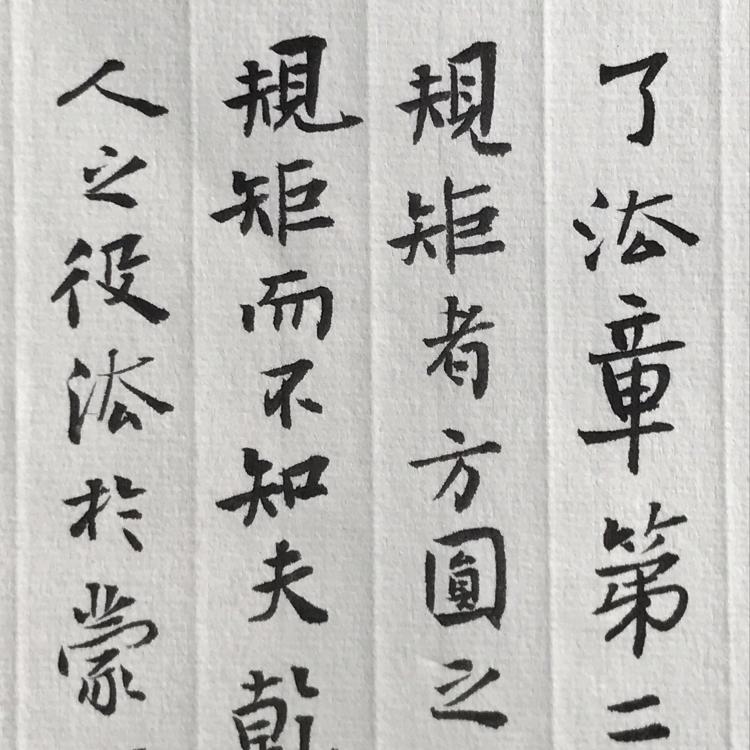 了法章第二
規矩者方圓之
規矩而不知夫乾
人之役法於蒙